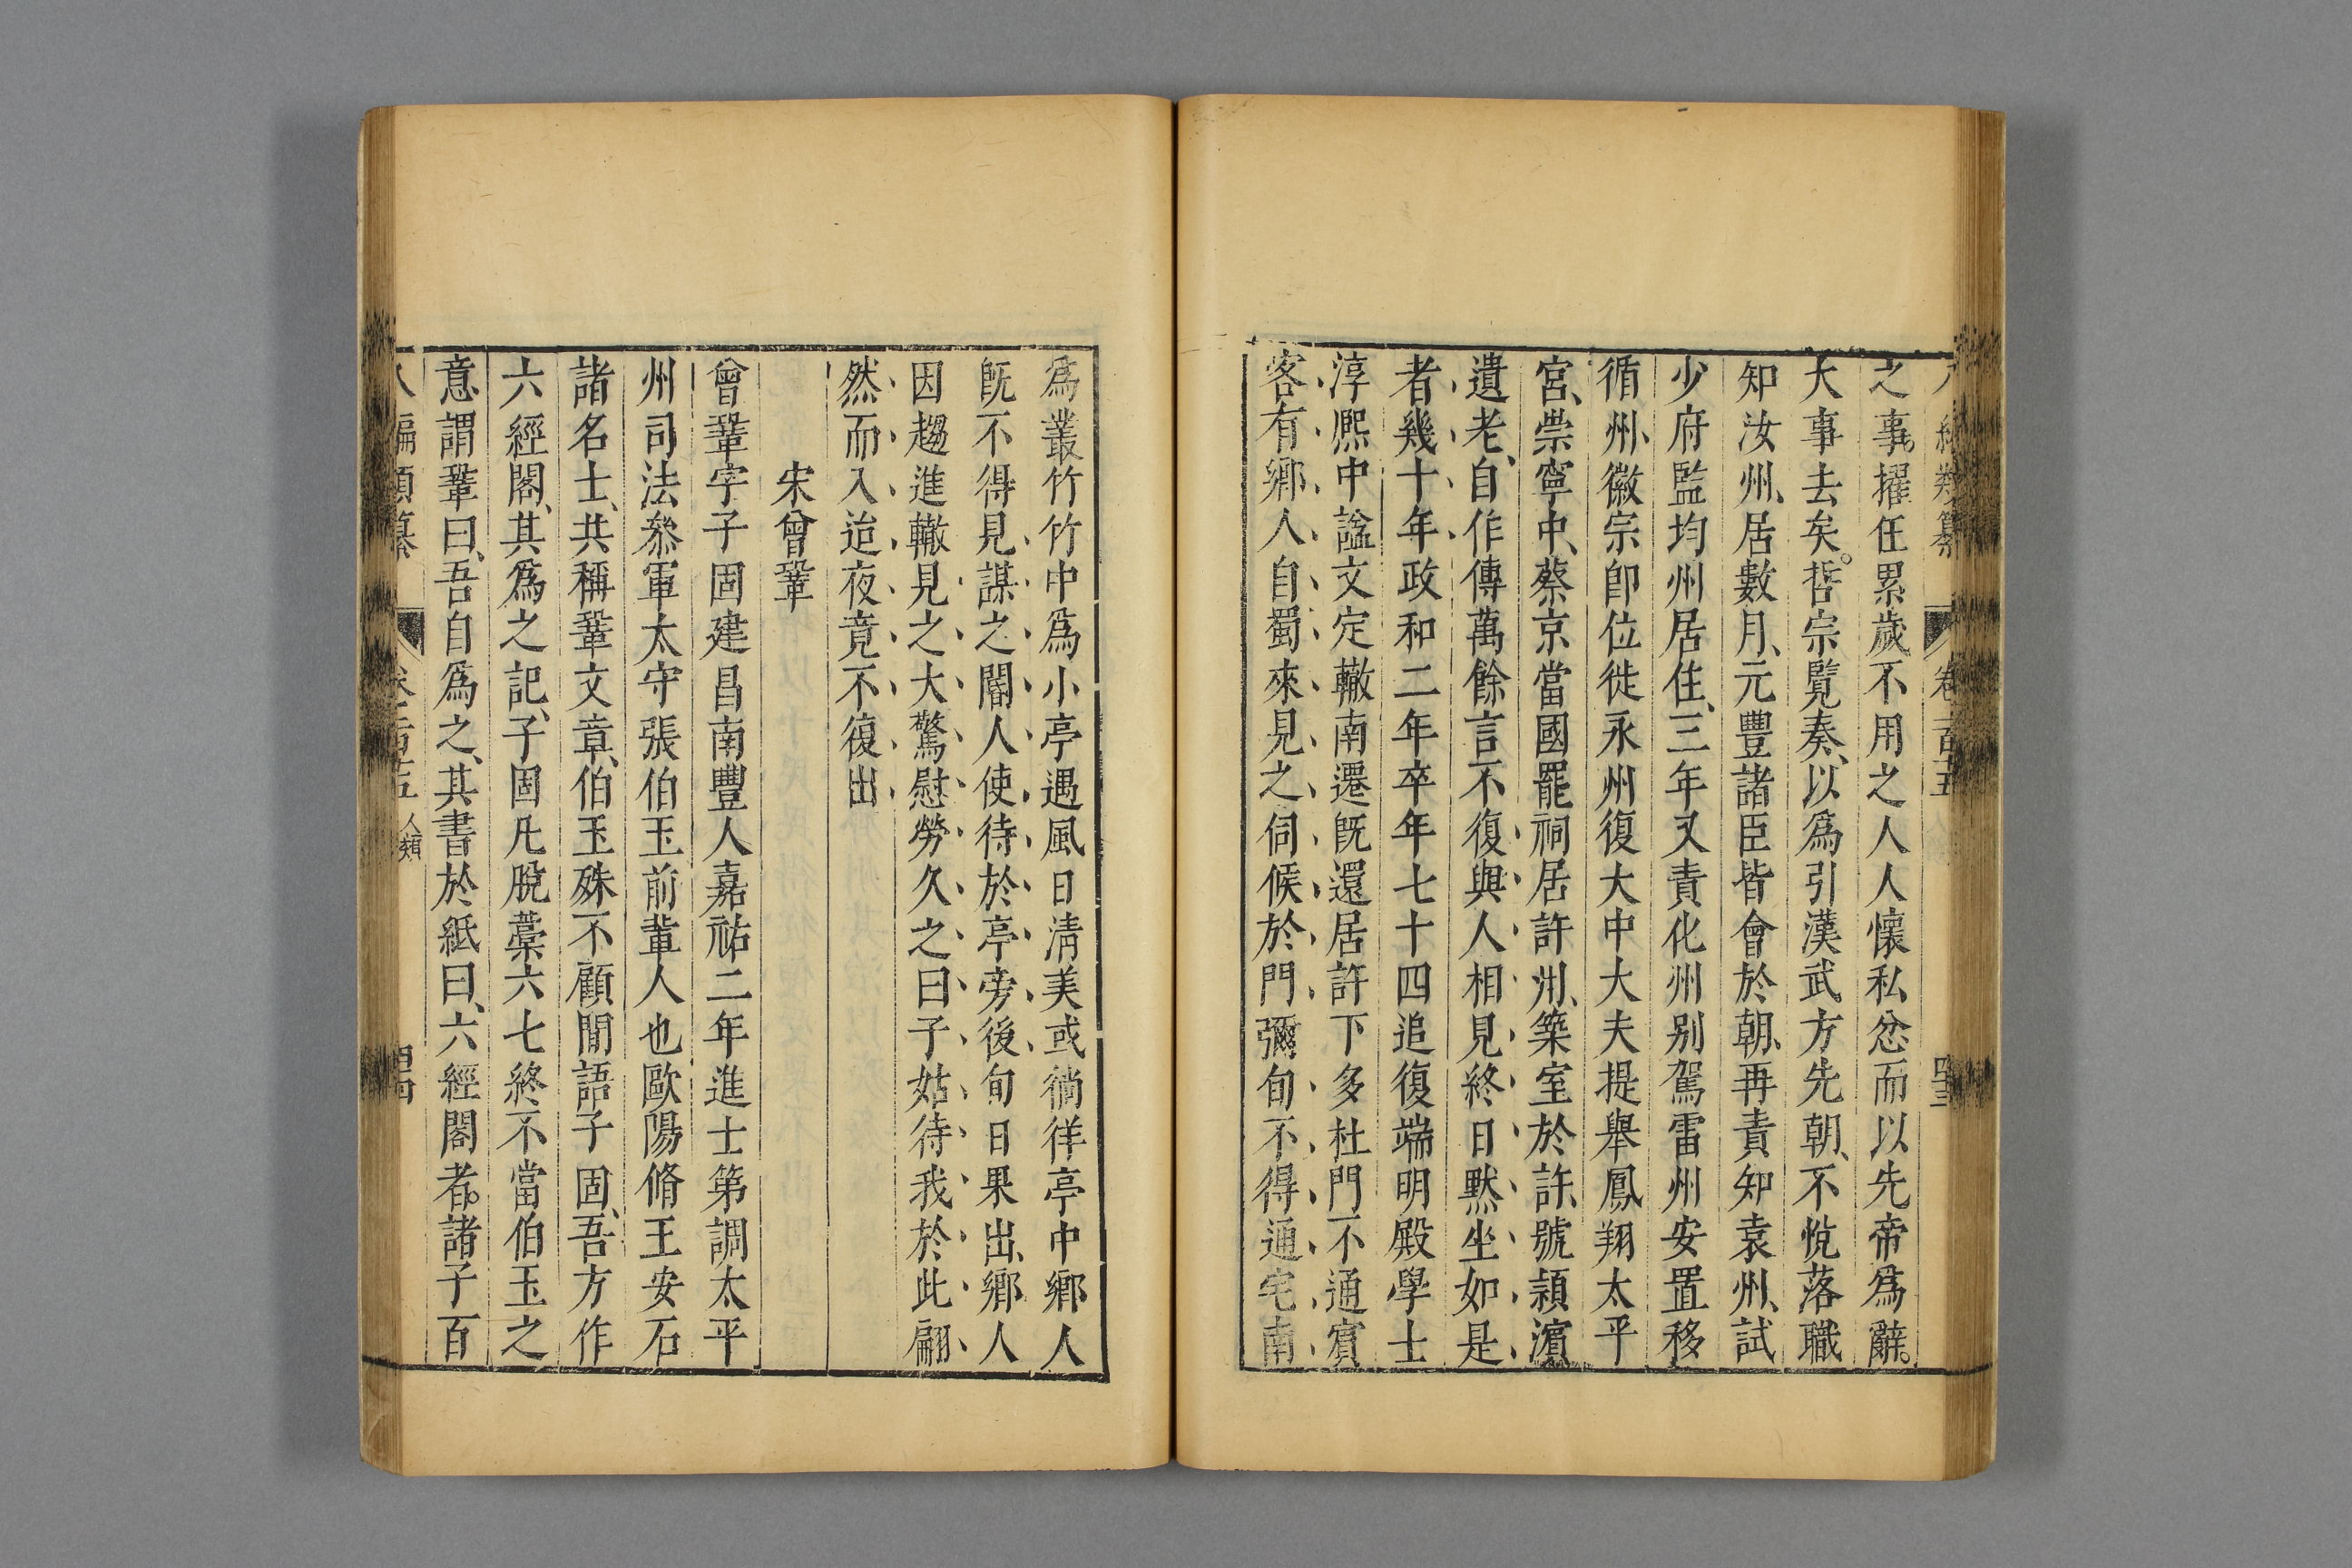 之事擢任累歲不用之人人懷私忿而以先帝爲辭。
大事去矣。哲宗覽奏、以爲引漢武方先朝、不悅落職
知汝州、居數月、元豐諸臣皆會於朝、再責知袁州、試
少府監均州居住、三年又責化州别駕雷州安置移
循州、徽宗卽位徙永州復大中大夫提舉鳳翔太平
宮、崇寧中、蔡京當國罷祠居許州、築室於許、號潁濵
遺老、自作傳萬餘言不復與人相見終日默坐如是
者幾十年政和二年卒年七十四追復端明殿學士
淳熙中諡文定轍南遷旣還居許下多杜門不通賔
客有鄉人自蜀來見之伺候於門彌旬不得通宅南
爲叢竹竹中爲小亭遇風日清美或徜徉亭中鄉人
旣不得見謀之閽人使待於亭旁後旬日果出、鄉人
因趨進轍見之大驚慰勞久之曰子姑待我於此翩
然而入迨夜竟不復出
宋曾鞏
曾鞏字子固建昌南豐人嘉祐二年進士第調太平
州司法叅軍太守張伯玉前輩人也歐陽脩王安石
諸名士、共稱鞏文章、伯玉殊不顧間語子固、吾方作
六經閣、其爲之記、子固凡脫藁六七終不當伯玉之
意、謂鞏曰、吾自爲之、其書於紙曰、六經閣者。諸子百